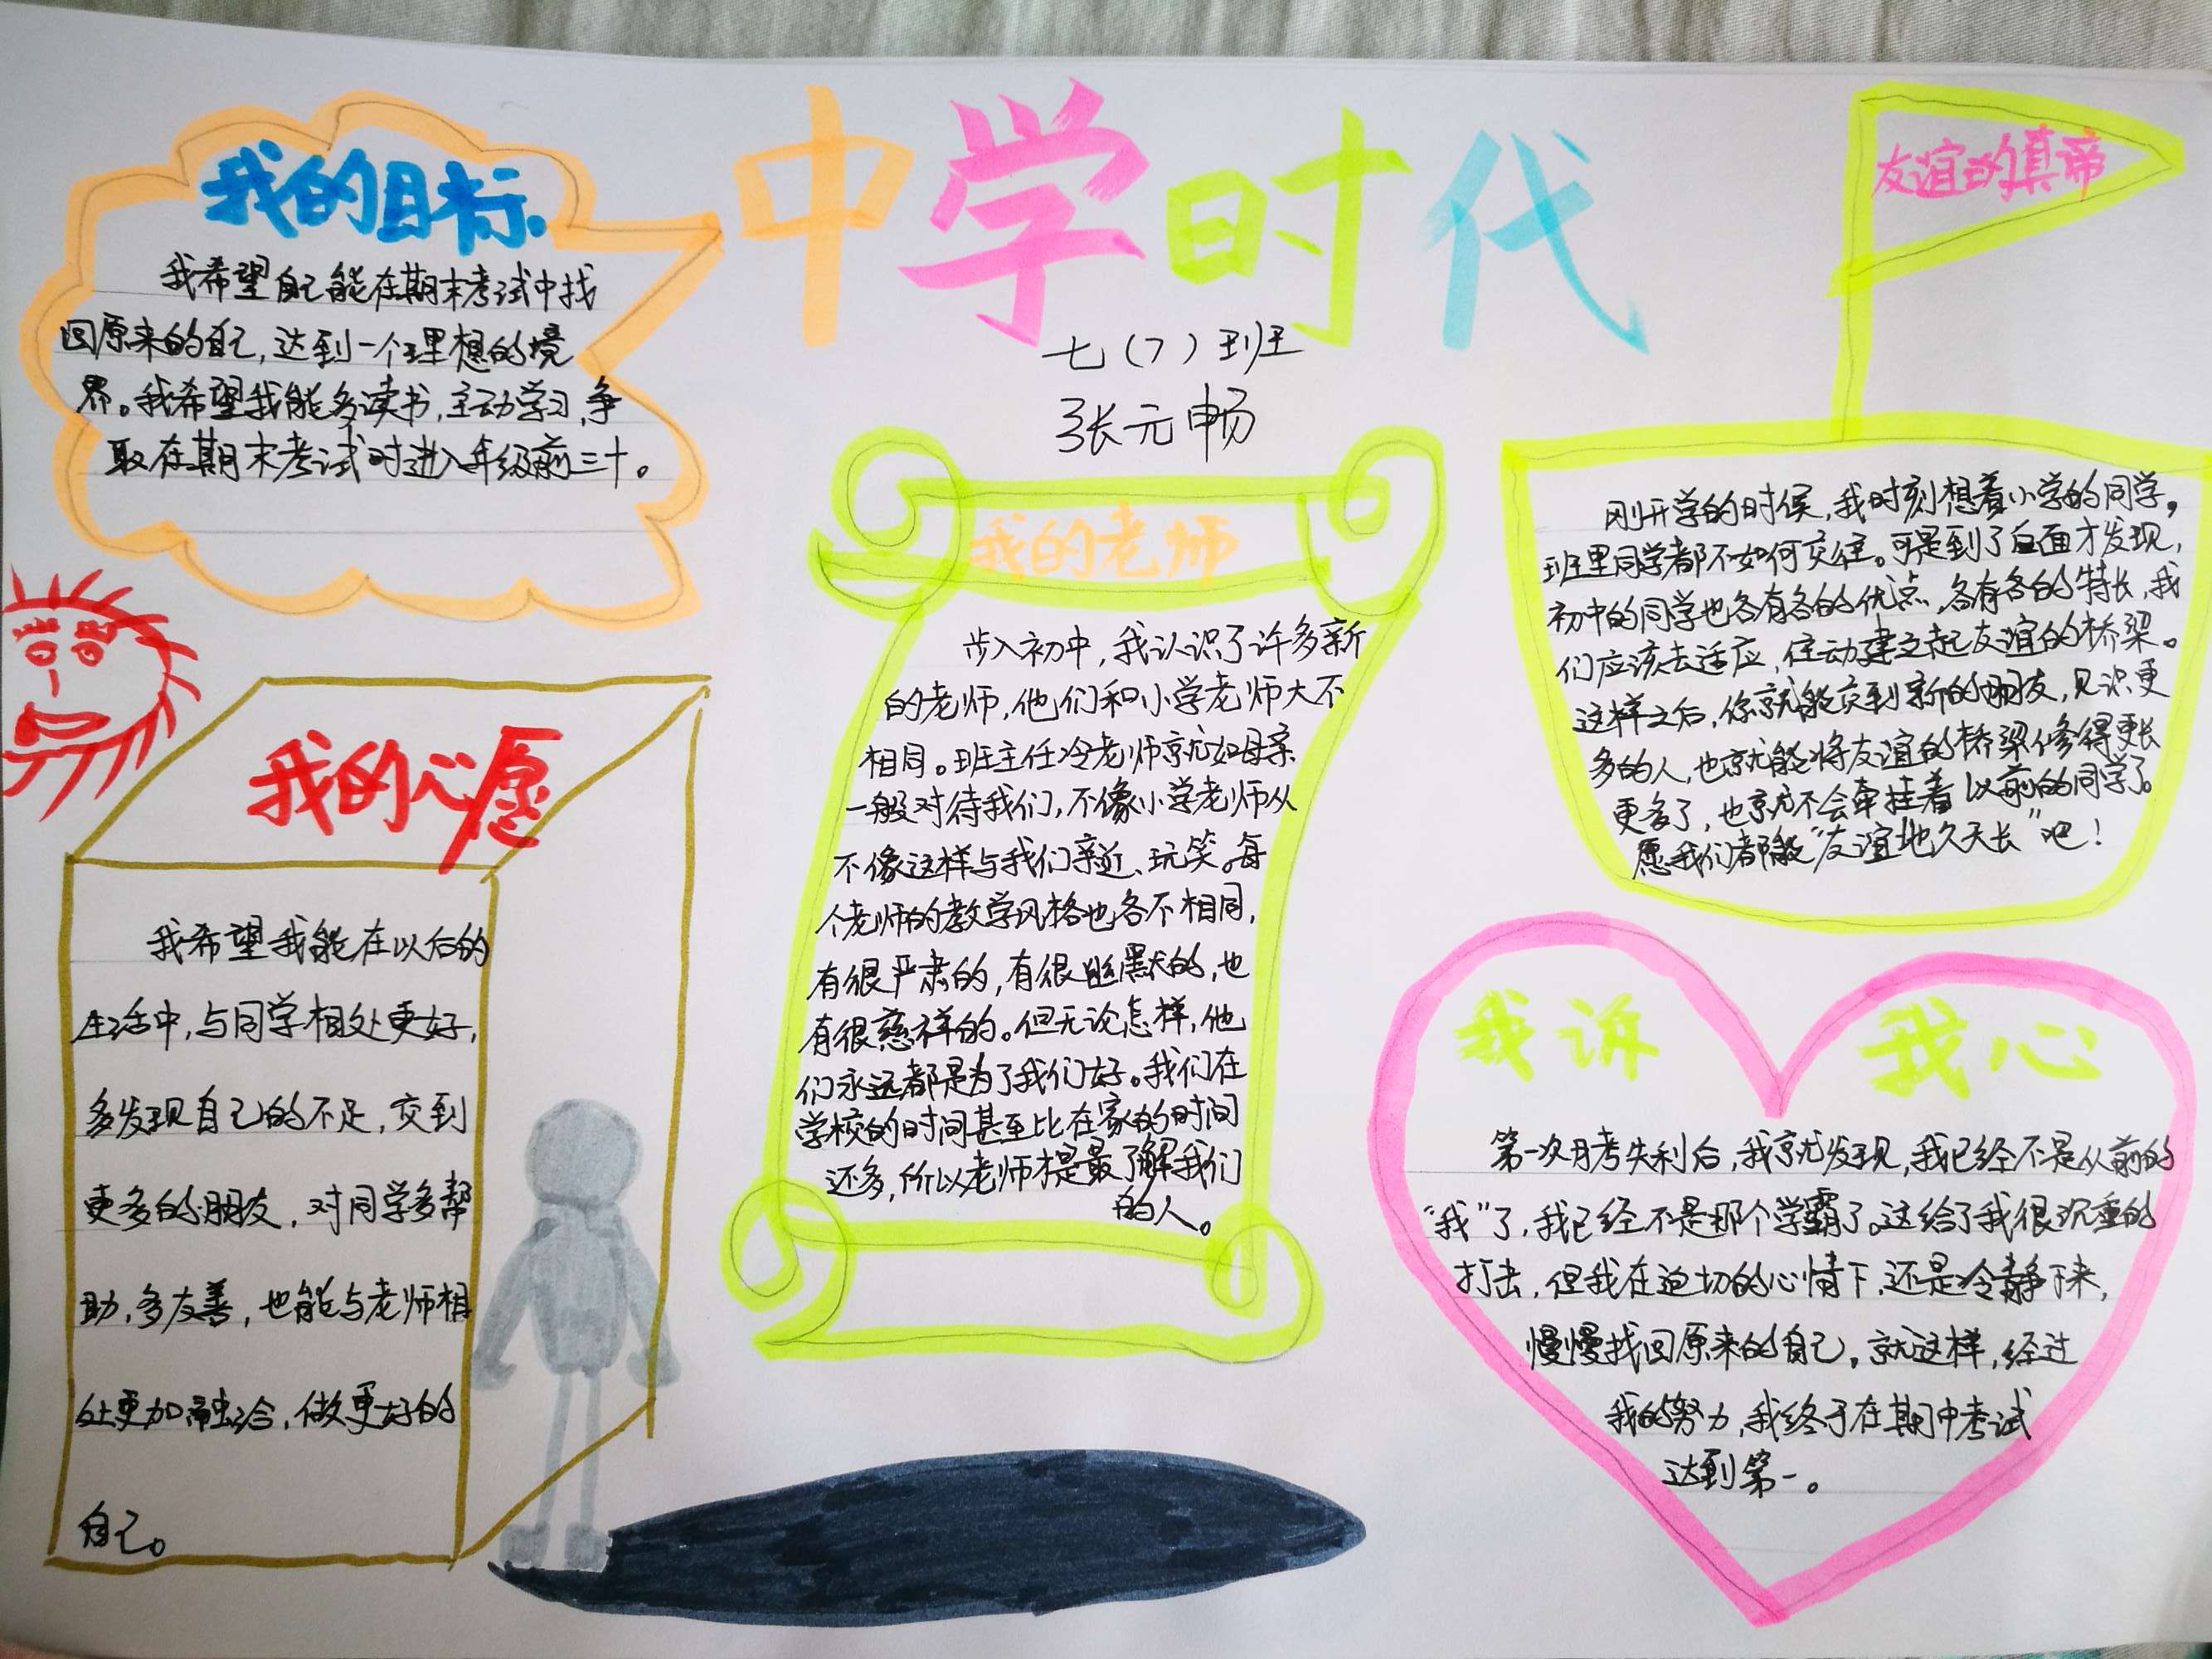 中学时代
七（7）班
张元畅
我的目标.
我希望自己能在期末考试中找
回原来的自己，达到一个理想的境
界。我希望我能多读书，主动学习，争
取在期末考试时进入年级前三十。
我的心愿
我希望我能在以后的
生活中，与同学相处更好，
多发现自己的不足，交到
更多的朋友，对同学多帮
助，多友善，也能与老师相
处更加融洽，做更好的
自己。
我的老师
步入初中，我认识了许多新
的老师，他们和小学老师大不
相同。班主任冷老师就如母亲
一般对待我们，不像小学老师从
不像这样与我们亲近、玩笑。每
个老师的教学风格也各不相同，
有很严肃的，有很幽默的，也
有很慈祥的。但无论怎样，他
们永远都是为了我们好。我们在
学校的时间甚至比在家的时间
还多，所以老师才是最了解我们
的人。
友谊的真帝
刚开学的时候，我时刻想着小学的同学，
班里同学都不如何交往。可是到了后面才发现，
初中的同学也各有各的优点，各有各的特长，我
们应该去适应，住动建立起友谊的桥梁。
这样之后，你就能交到新的朋友，见识更
多的人，也就能将友谊的桥梁修得更长
更多了，也就不会牵挂着以前的同学了。
愿我们都能“友谊地久天长”吧！
我诉 我心
第一次月考失利后，我就发现，我已经不是从前的
“我”了，我已经不是那个学霸了。这给了我很沉重的
打击，但我在迫切的心情下，还是冷静下来，
慢慢找回原来的自己。就这样，经过
我的努力，我终于在期中考试
达到第一。